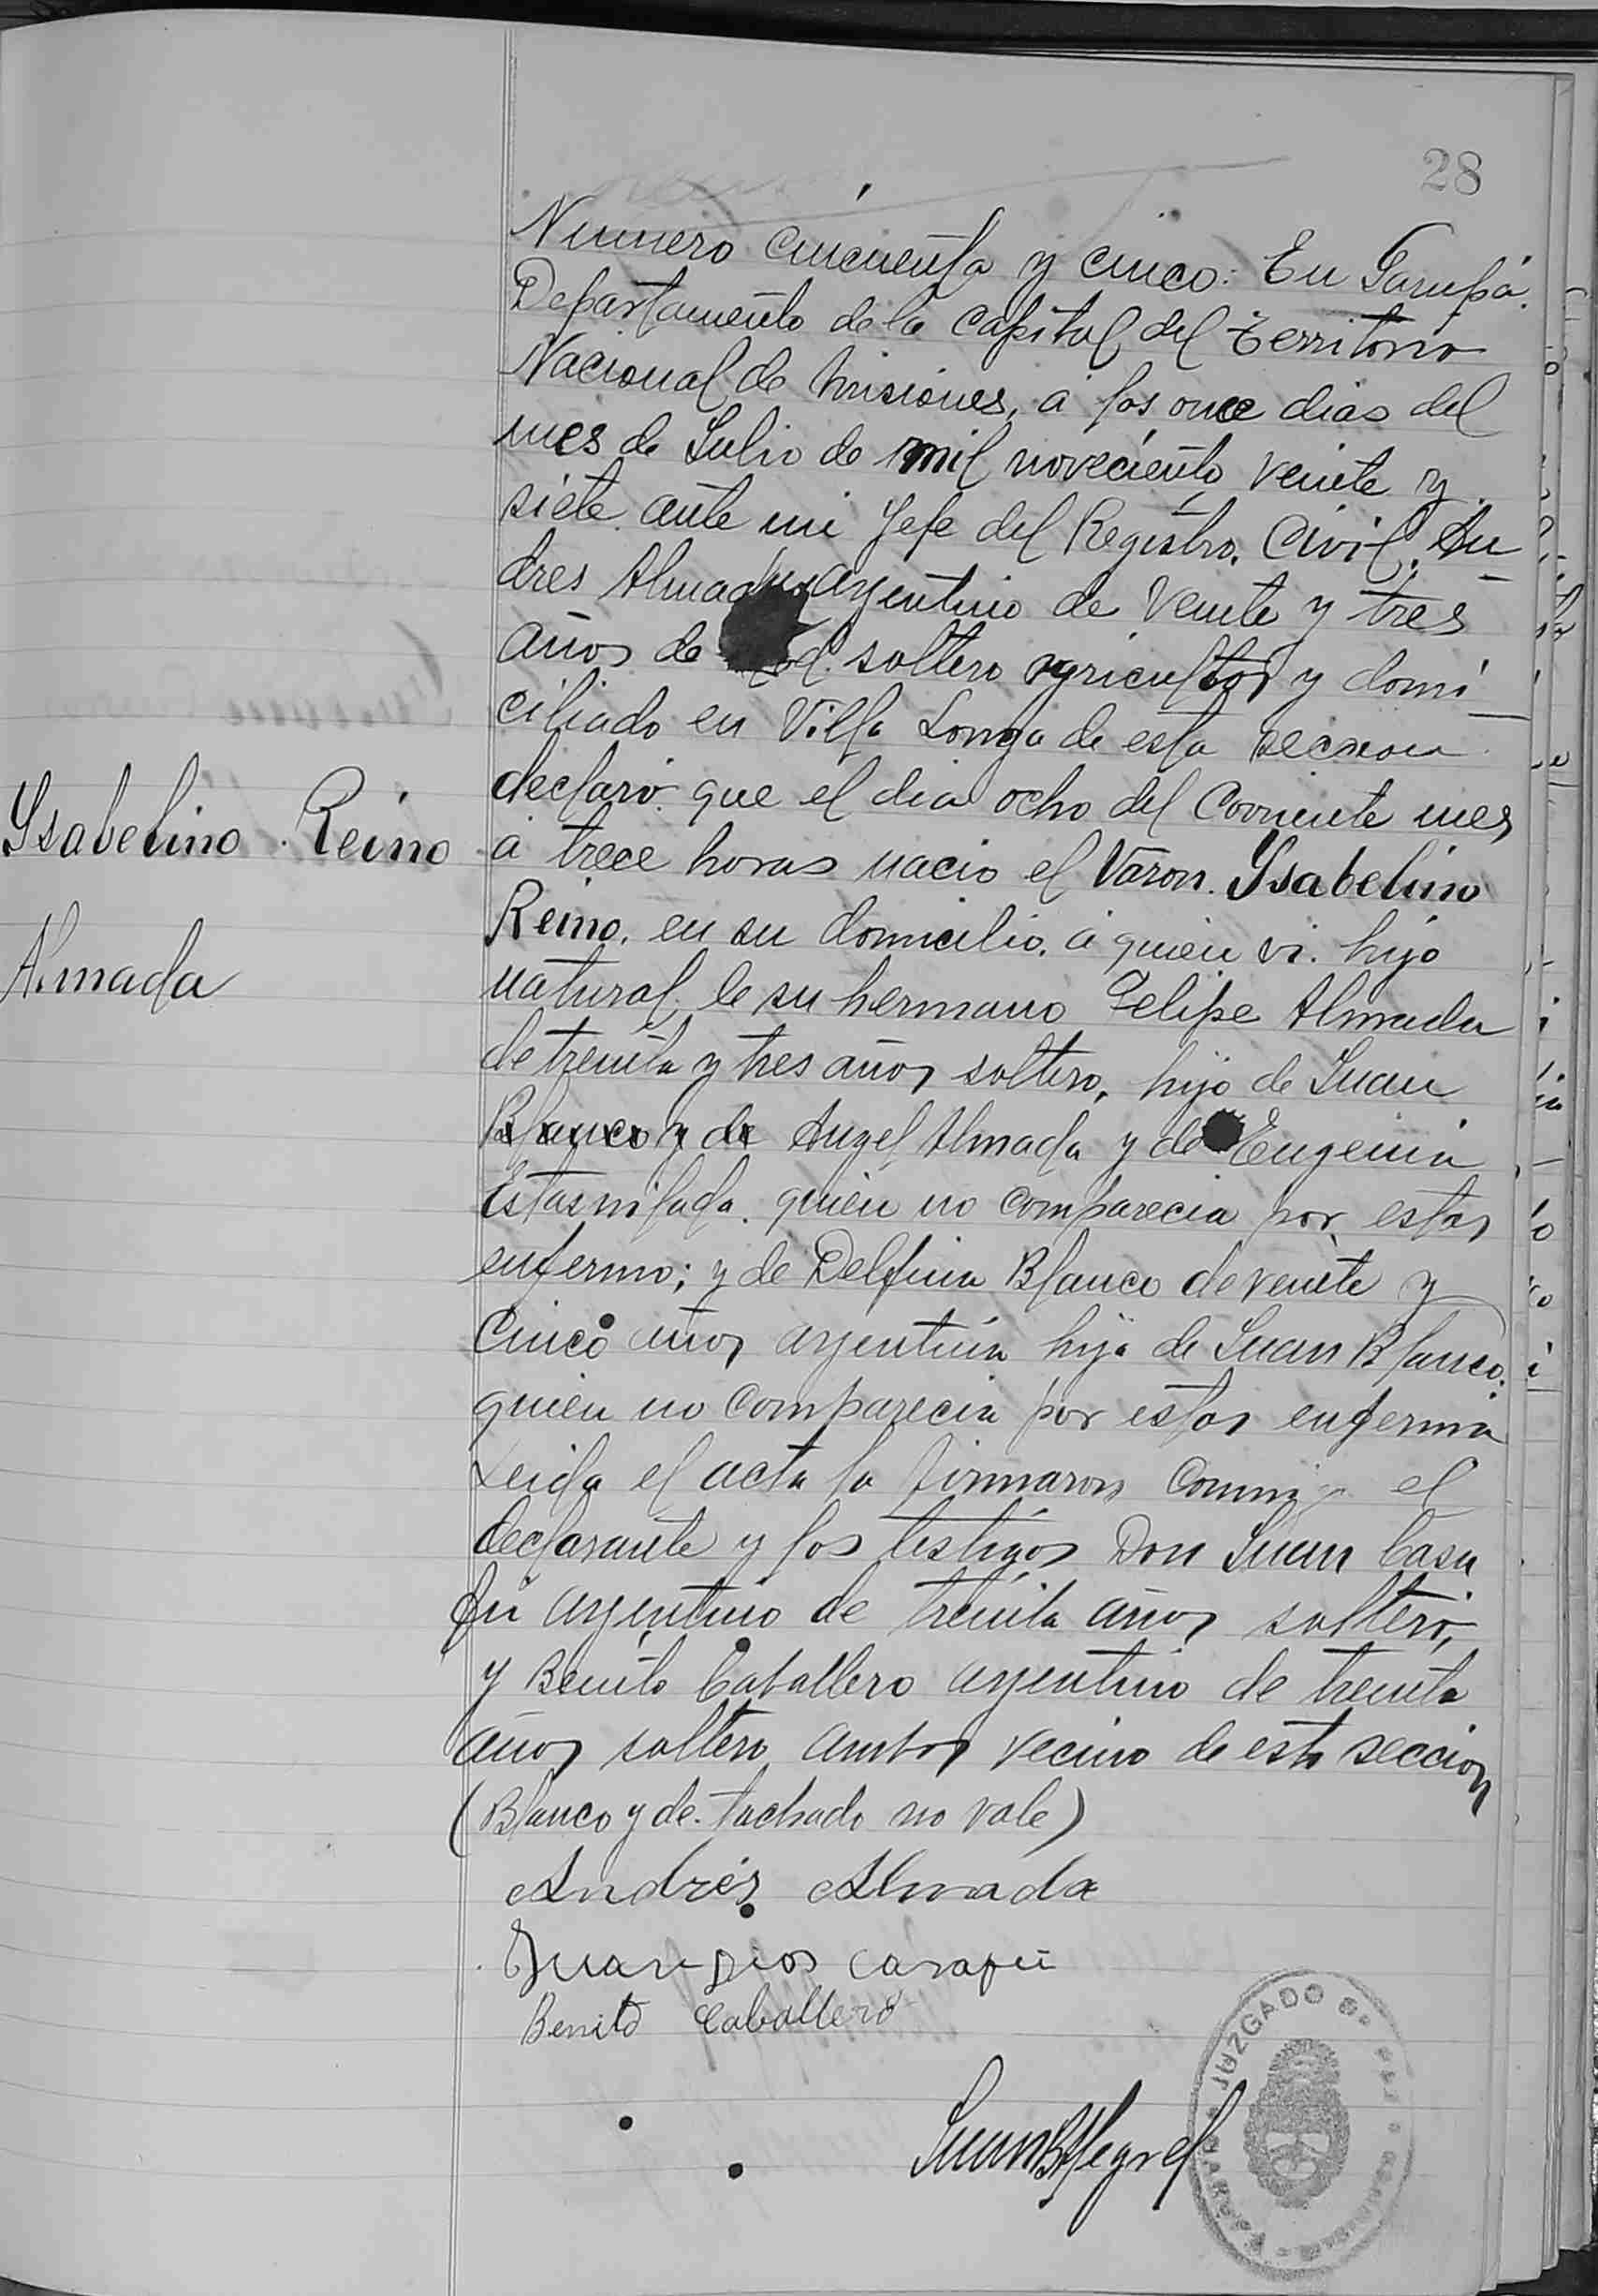 28
Numero cincuenta y cinco: En Garupá.
Departamento de la Capital del Territorio
Nacional de Misiones, a los once dias del
mes de Julio de mil noveciento veinte y
siete ante mi Jefe del Registro Civil, An
dres Almada argentino de Veinte y tres
años de soltero agricultor y domi
ciliado en Villa Longa de esta seccion
declaró que el dia ocho del Corriente mes
a trece horas nacio el Varon. Ysabelino
Ysabelino Reino
Reino, en su domicilio, a quien vi. hijo
Almada
natural de su hermano Felipe Almada
de treinta y tres años soltero, hijo de Juan
Blanco y de Angel Almada y de Eugenia
quien no comparecia por estar
enfermo; y de Delfina Blanco de veinte y
Cinco años argentina hija de Juan Blanco.
quien no comparecia por estar enferma
Leida el acta la firmaron Conmigo el
declarante y los testigos Don Juan
argentino de treinta años soltero,
y Benito Caballero argentino de treinta
años soltero ambos vecino de esta seccion
(Blanco y de. tachado no vale)
Andrés Almada
Juan Dios
Benito Caballero
JUZGADO DE